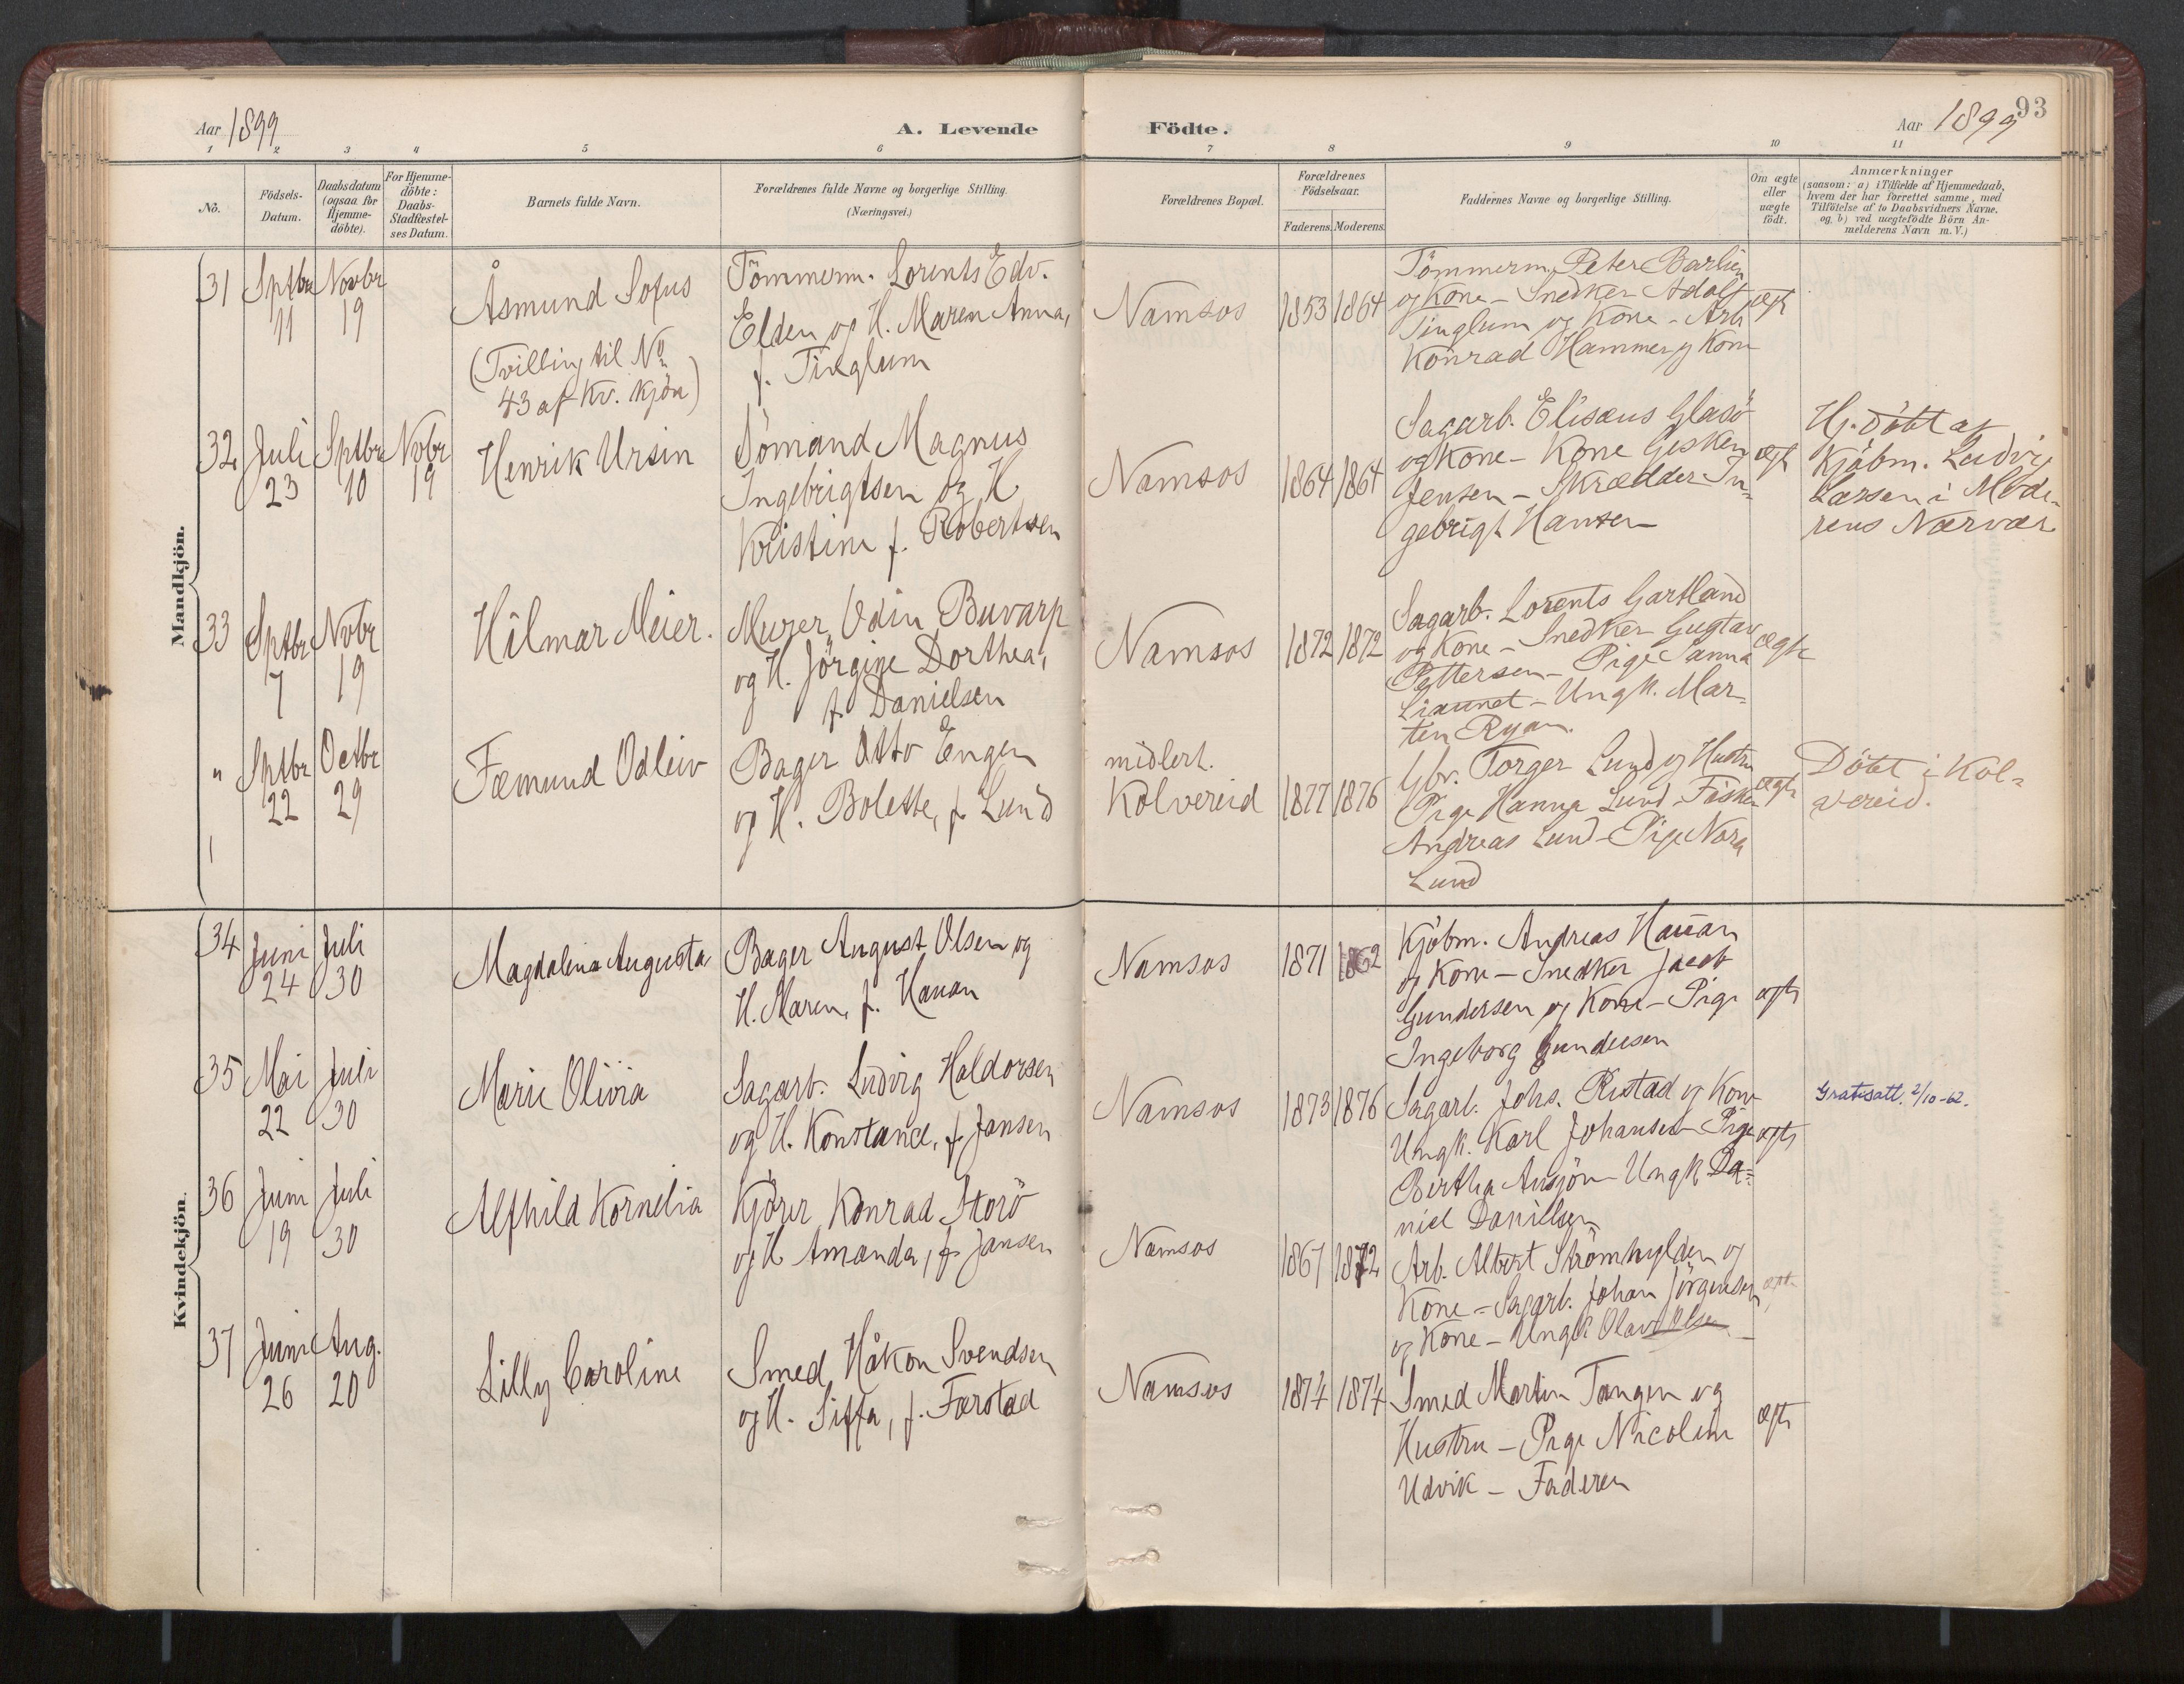 Aar 1899
A. Levende
Födte.
Aar 1899
93
1 2 3 4 5 6 7 8 9 10 11
No.
Födsels-Datum.
Daabsdatum (ogsaa for Hjemme-döbte).
For Hjemme-döbte: Daabs-Stadfæstel-ses Datum.
Barnets fulde Navn.
Forældrenes fulde Navne og borgerlige Stilling.
(Næringsvei.)
Forældrenes Bopæl.
Forældrenes Födselsaar.
Faderens. Moderens.
Faddernes Navne og borgerlige Stilling.
Om ægte eller uægte födt.
Anmærkninger
(saasom: a) i Tilfælde af Hjemmedaab,
hvem der har forrettet samme, med
Tilföielse af to Daabsvidners Navne.
og b) ved uægtefödte Börn An-
melderens Navn m.V.)
Mandkjön.
31 Sptbr 11 Novbr 19
Åsmund Sofus
(Tvilling til No
43 af Kv. kjön)
Tömmerm. Lorents Edv.
Elden og H. Maren Anna,
f. Tinglum
Namsos 1853 1864
Tömmerm. Peter Barlien
og Kone - Snedker Adolf
Tinglum og Kone - Arb.
Konrad Hammer og Kone
ægt
32 Juli 23 Sptbr 10 Novbr 19
Henrik Ursin
Sömand Magnus
Ingebrigtsen og H.
Kristine f. Robertsen
Namsos 1864 1864
Sagarb. Elisæus Glasö
og Kone - Kone Gesken
Jensen - Skrædder In-
gebrigt Hansen
ægt
Hj. döbt af
Kjöbm. Ludvig
Larsen i Mode-
rens Nærvær
33 Sptbr 7 Novbr 19
Hilmar Meier.
Murer Odin Buvarp
og H. Jörgine Dorthea,
f. Danielsen
Namsos 1872 1872
Sagarb. Lorents Gartland
og Kone - Snedker Gustav
Pettersen - Pige Sanna
Liaunet - Ungk. Mar-
ten Ryan.
ægte
" Sptbr 22 Octbr 29
Fæmund Odleiv
Bager Otto Engen
og H. Bolette, f. Lund
midlert.
Kolvereid 1877 1876
Gbr. Torger Lund og Hustru
Pige Hanna Lund - Fisker
Andreas Lund - Pige Nora
Lund
ægte
Döbt i Kol-
vereid.
Kvindekjön.
34 Juni 24 Juli 30
Magdalena Augusta
Bager August Olsen og
H. Maren, f. Hauan
Namsos 1871 1862
Kjöbm. Andreas Hauan
og Kone - Snedker Jacob
Gundersen og Kone - Pige
Ingeborg Gundersen
ægte
35 Mai 22 Juli 30
Marie Olivia
Sagarb. Ludvig Haldorsen
og H. Konstance, f. Jansen
Namsos 1873 1876
Sagarb. Johs. Rustad og Kone
Ungk. Karl Johansen - Pige
Bertha Ansjön - Ungk Da-
niel Danielsen
ægte
Gratisatt. 2/10-62.
36 Juni 19 Juli 30
Alfhild Kornelia
Kjörer Konrad Storö
og H Amanda, f. Jansen
Namsos 1867 1872
Arb. Albert Strömhylden og
Kone - Sagarb. Johan Jörgensen
og Kone - Ungk Olav Olsen
ægte
37 Juni 26 Aug. 20
Lilly Caroline
Smed Håkon Svendsen
og H. Siffa, f. Færstad
Namsos 1874 1874
Smed Martin Tangen og
Hustru - Pige Nicoline
Udvik - Faderen
ægte